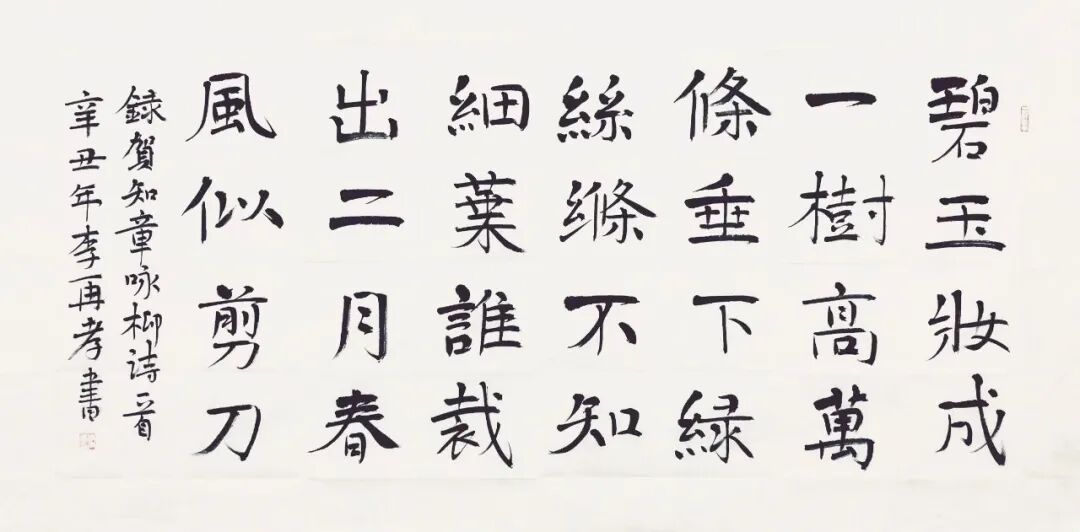 碧玉妝成
一樹高萬
條垂下緑
絲縧不知
細葉誰裁
出二月春
風似剪刀
録賀知章咏柳詩一首
辛丑年李再孝書